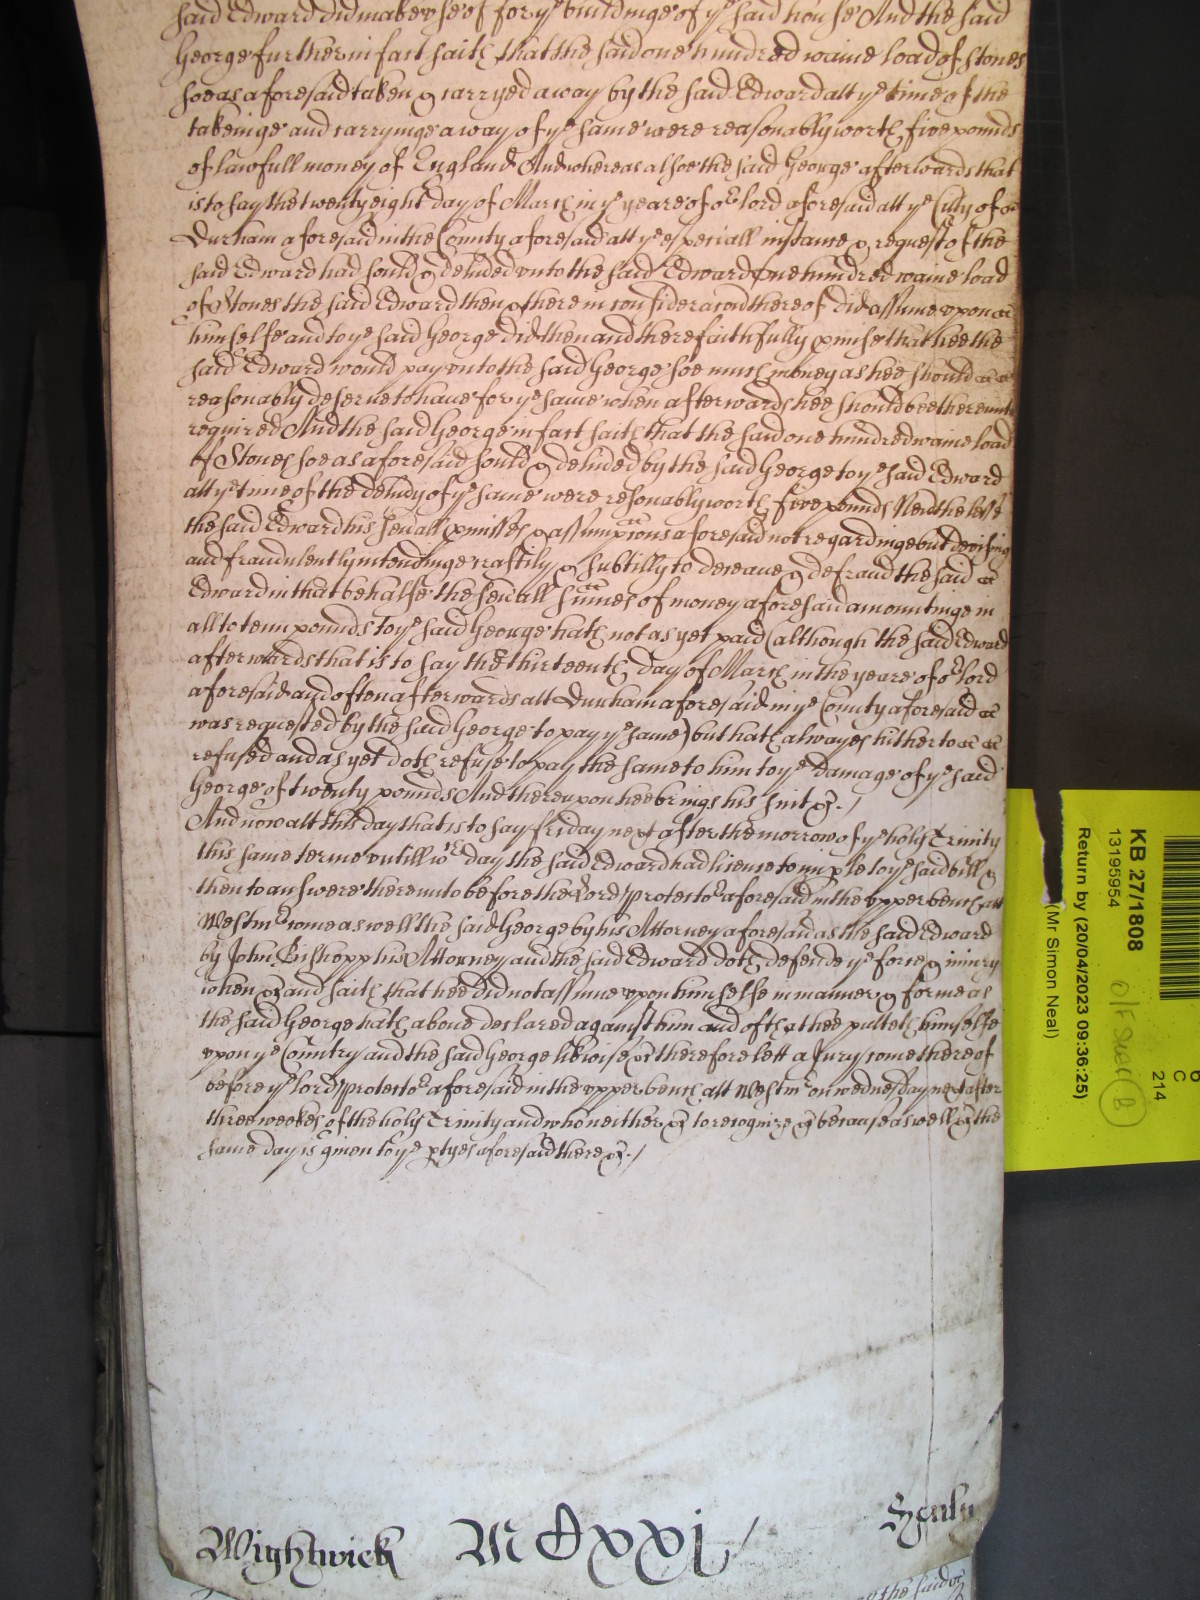 said Edward did make use of for ye buildinge of ye said house And the said
George further in fact saith that the said one hundred waine load of stones
soe as aforesaid taken & carryed away by the said Edward att ye time of the
takeinge and carryinge away of ye same were reasonably worth five pounds
of lawfull money of England And whereas alsoe the said George afterwards that
is to say the twenty eight day of March in ye yeare of or lord aforesaid att ye Citty of
Durham aforesaid in the County aforesaid att ye especiall instance & request of the
said Edward had sould & delivered unto the said Edward one hundred waine load
of Stones the said Edward then & there in consideracon thereof did assume upon
himselfe and to ye said George did then and there faithfully pmise that hee the
said Edward would pay unto the said George soe much money as hee should
reasonably deserve to have for ye same when afterwards hee should bee thereunto
required And the said George in fact saith that the said one hundred waine load
of Stones soe as aforesaid sould & delivered by the said George to ye said Edward
att ye time of the delivy of ye same were resonably worth five pounds Nevthelesse
the said Edward his sevall pmisses & assumpcons aforesaid not regardinge but devising
and fraudulently intendinge craftily & subtilly to deceave & defraud the said
Edward in that behalfe the sevall summes of money aforesaid amountinge in
all to tenn pounds to ye said George hath not as yet paid (although the said Edward
afterwards that is to say the thirteenth day of March in the yeare of or lord
aforesaid and often afterwards att Durham aforesaid in ye County aforesaid
was requested by the said George to pay ye same) but hath alwayes hitherto
refused and as yet doth refuse to pay the same to him to ye damage of ye said
George of twenty pounds And thereupon hee brings his suit &c./
And now att this day that is to say friday next after the morrow of ye holy Trinity
this same terme untill wch day the said Edward had licence to imple to ye said bill &
then to answere thereunto before the Lord protector aforesaid in the upper bench att
Westmr come aswell the said George by his Attorney aforesaid as the said Edward
by John Bishopp his Attorney and the said Edward doth defend ye force & iniury
when &c and saith that hee did not assume upon himselfe in manner & forme as
the said George hath above declared against him and of this hee putteth himselfe
upon ye Country and the said George likwise &c therefore lett a Jury come thereof
before ye lord protector aforesaid in the upper bench att Westmr on wednesday next after
three weekes of the holy Trinity and who neither &c to recognize &c because aswell &c the
same day is given to ye ptyes aforesaid there &c./
Wightwick MDxxj/
the said
KB 27/1808
13195954
Return by (20/04/2023 09:36:25)
(Mr Simon Neal)
6
C
214